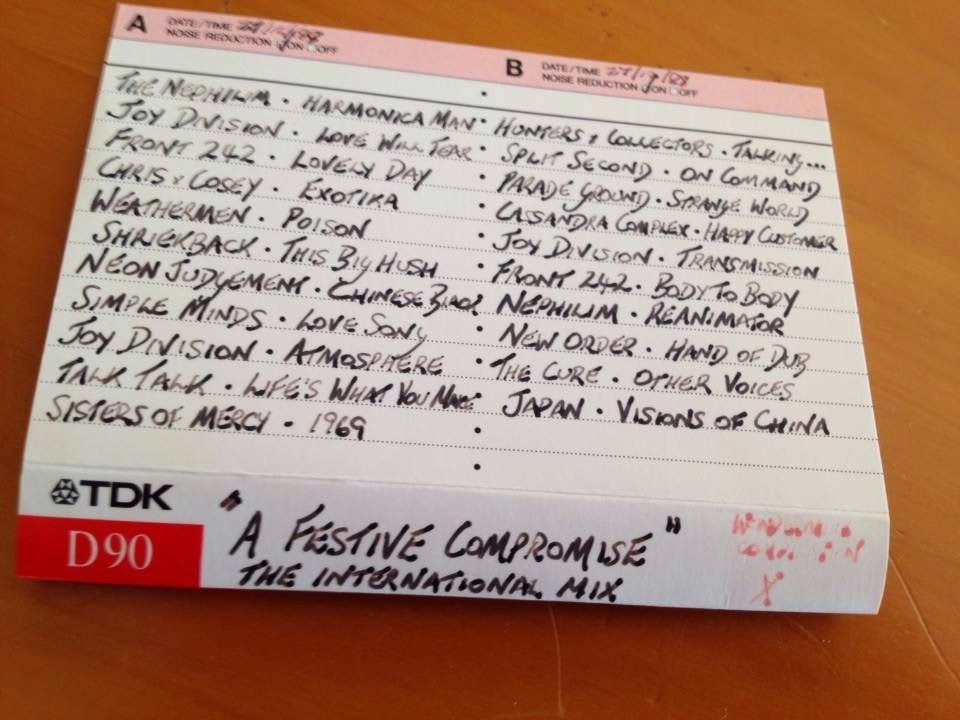 A DATE/TIME
NOISE REDUCTION ON OFF
THE NEPHILIM · HARMONICA MAN
JOY DIVISION · LOVE WILL TEAR
FRONT 242 · LOVELY DAY
CHRIS & COSEY · EXOTIKA
WEATHERMEN · POISON
SHRIEKBACK · THIS BIG HUSH
NEON JUDGEMENT · CHINESE
SIMPLE MINDS · LOVE SONG
JOY DIVISION · ATMOSPHERE
TALK TALK · LIFE'S WHAT YOU MAKE
SISTERS OF MERCY · 1969
B DATE/TIME
NOISE REDUCTION ON OFF
HUNTERS & COLLECTORS · TALKING...
SPLIT SECOND · ON COMMAND
PARADE GROUND · STRANGE WORLD
CASSANDRA COMPLEX · HAPPY CUSTOMER
JOY DIVISION · TRANSMISSION
FRONT 242 · BODY TO BODY
NEPHILIM · REANIMATOR
NEW ORDER · HAND OF DUB
THE CURE · OTHER VOICES
JAPAN · VISIONS OF CHINA
TDK
D90
"A FESTIVE COMPROMISE"
THE INTERNATIONAL MIX
X